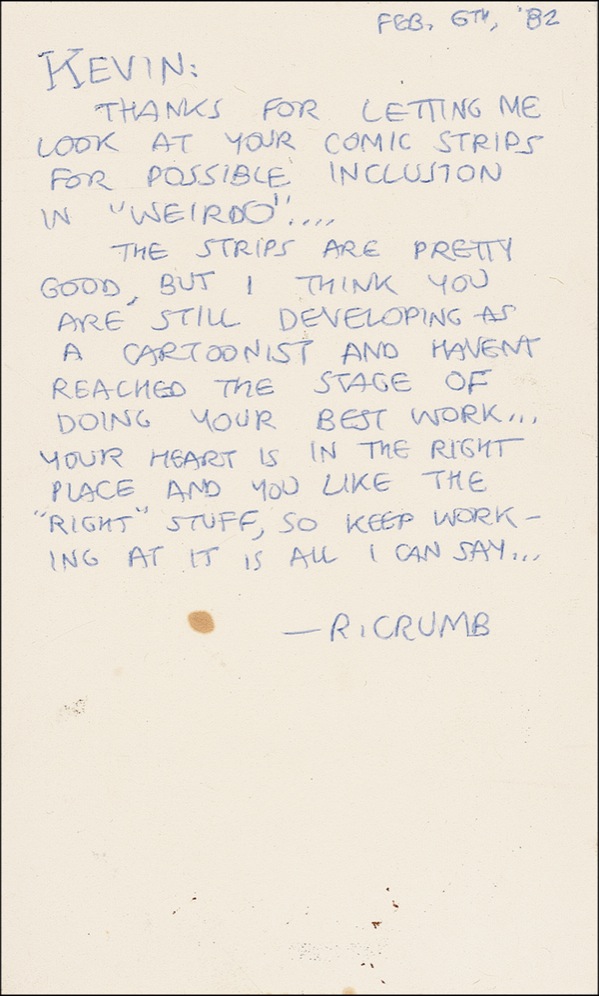 FEB. 6TH, '82
KEVIN:
THANKS FOR LETTING ME
LOOK AT YOUR COMIC STRIPS
FOR POSSIBLE INCLUSION
IN "WEIRDO"....
THE STRIPS ARE PRETTY
GOOD, BUT I THINK YOU
ARE STILL DEVELOPING AS
A CARTOONIST AND HAVENT
REACHED THE STAGE OF
DOING YOUR BEST WORK...
YOUR HEART IS IN THE RIGHT
PLACE AND YOU LIKE THE
"RIGHT" STUFF, SO KEEP WORK-
ING AT IT IS ALL I CAN SAY...
—R. CRUMB